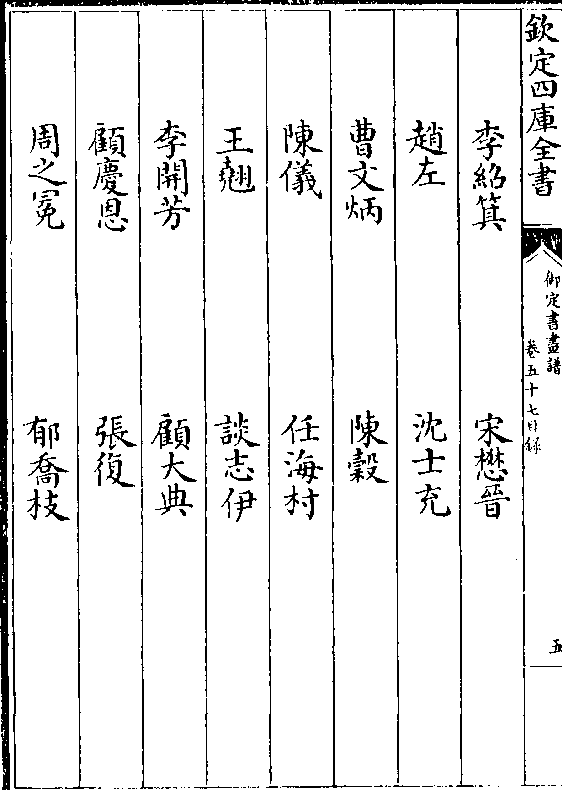 欽定四庫全書
御定書畫譜
卷五十七目録
五
李紹箕 宋懋晉
趙左 沈士充
曹文炳 陳縠
陳儀 任海村
王翹 談志伊
李開芳 顧大典
顧慶恩 張復
周之冕 郁喬枝